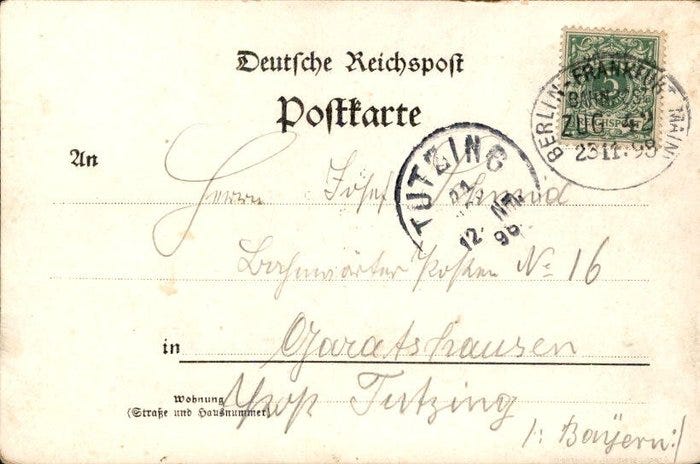 Deutsche Reichspost
Postkarte
BERLIN-FRANKFURT MAIN
ZUG 42
23 11. 98
TUTZING
12. NM
98
An
Herrn Josef Schmid
Bahnwärter Posten No 16
in Garatshausen
Wohnung
(Straße und Hausnummer)
Post Tutzing
/: Bayern :/